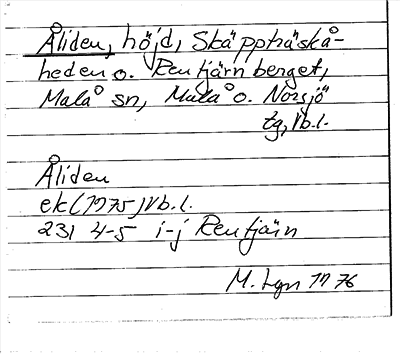 Åliden, höjd, Skäppträskå-
heden o. Rentjärnberget,
Malå sn, Malå o. Norsjö
tg, Vb.l.
Åliden
ek (1975) Vb.l.
231 4-5 i-j Rentjärn
M. Lgn 1976